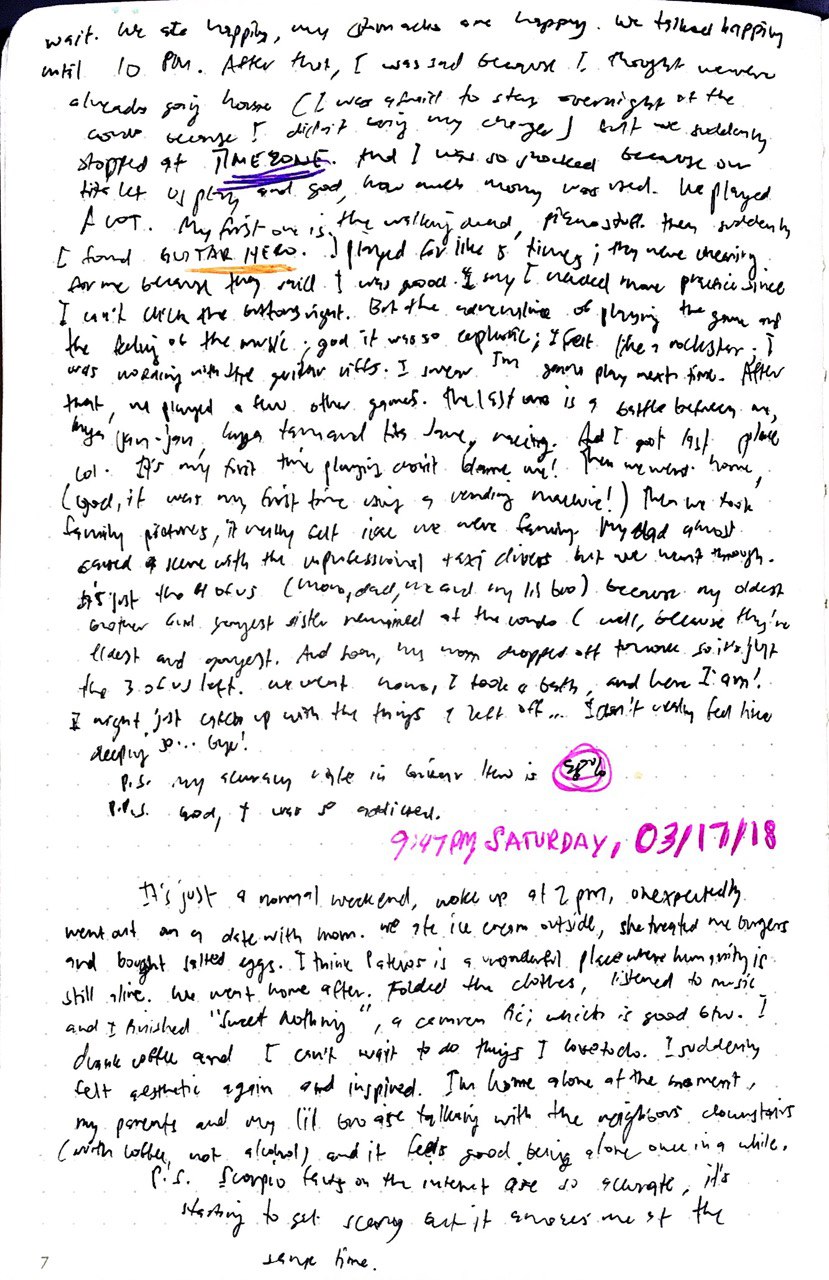 wait. We ate happily, my stomachs are happy. We talked happily
until 10 PM. After that, I was sad because I thought we were
already going house (I was afraid to stay overnight at the
condo because I didn't bring my charger) but we suddenly
stopped at TIMEZONE. And I was so shocked because our
tita let us play and god, how much money was used. We played
A LOT. My first one is the walking dead, piano stuff. then suddenly
I found GUITAR HERO. I played for like 5 times; they were cheering
for me because they said I was good. I say I needed more practice since
I can't click the buttons right. But the adrenaline of playing the game and
the feeling of the music; god it was so euphoric; I felt like a rockstar. I
was working with the guitar riffs. I swear I'm gonna play next time. After
that, we played a few other games. The last one is a battle between me,
kuya Jan-jan, kuya and tita Jane, racing. And I got last place
lol. It's my first time playing don't blame me! Then we went home,
(god, it was my first time using a vending machine!) Then we took
family pictures, it really felt like we were family. My dad almost
caused a scene with the unprofessional taxi drivers but we went through.
It's just the 4 of us (mom, dad, me and my lil bro) because my oldest
brother and youngest sister remained at the condo (well, because they're
eldest and youngest. And soon, my mom dropped off so it's just
the 3 of us left. we went home, I took a bath, and here I am!
I might just catch up with the things I left off... I don't really feel like
sleeping so... bye!
P.S. my accuracy rate in Guitar Hero is
P.P.S. God, I was so addicted.
9:47PM SATURDAY, 03/17/18
It's just a normal weekend, woke up at 2 pm, unexpectedly
went out on a date with mom. we ate ice cream outside, she treated me burgers
and bought salted eggs. I think Pateros is a wonderful place where humanity is
still alive. We went home after. Folded the clothes, listened to music
and I finished "Sweet Nothing", a camren fic; which is good btw. I
drank coffee and I can't wait to do things I love to do. I suddenly
felt aesthetic again and inspired. I'm home alone at the moment,
my parents and my lil bro are talking with the neighbors downstairs
(with coffee, not alcohol) and it feels good being alone once in a while.
P.S. Scorpio facts on the internet are so accurate, it's
starting to get scary but it amazes me at the
same time.
7